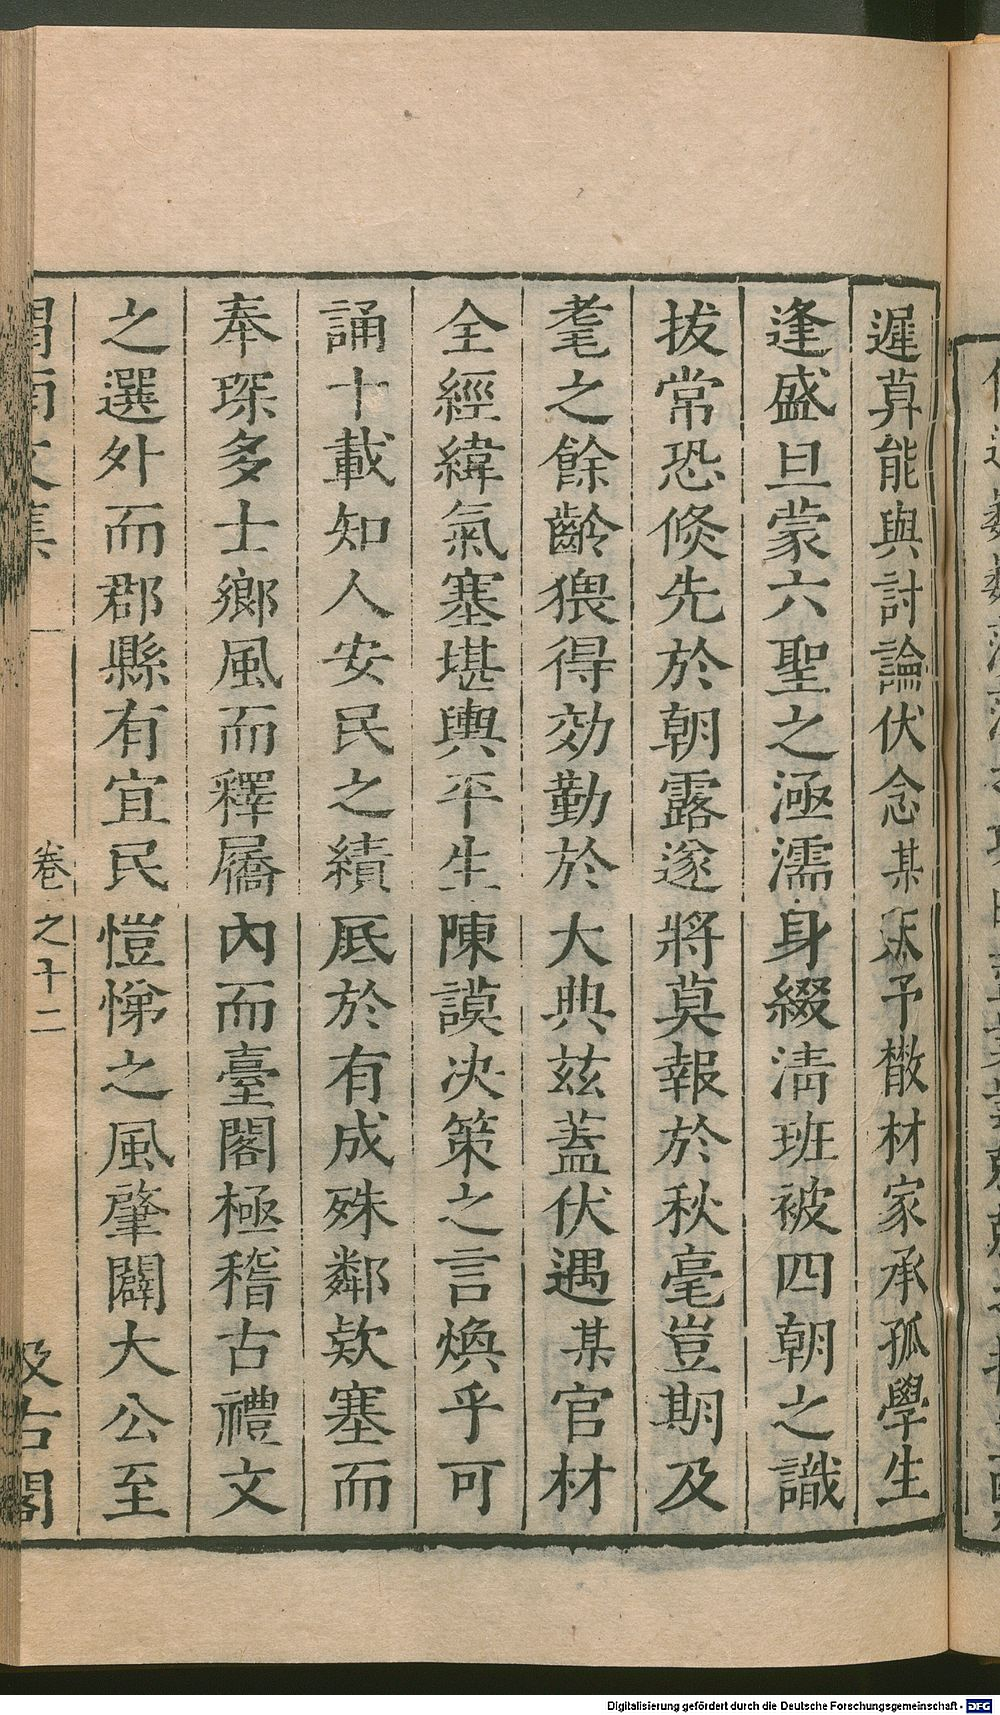 遲莫能與討論伏念某天予散材家承孤學生
逢盛旦蒙六聖之涵濡身綴清班被四朝之識
拔常恐倏先於朝露遂將莫報於秋毫豈期及
耄之餘齡猥得効勤於大典茲蓋伏遇某官材
全經緯氣塞堪輿平生陳謨决策之言煥乎可
誦十載知人安民之績底於有成殊鄰欵塞而
奉琛多士鄉風而釋屩內而臺閣極稽古禮文
之選外而郡縣有宜民愷悌之風肇闢大公至
渭南文集 卷之十二 汲古閣
Digitalisierung gefördert durch die Deutsche Forschungsgemeinschaft - DFG